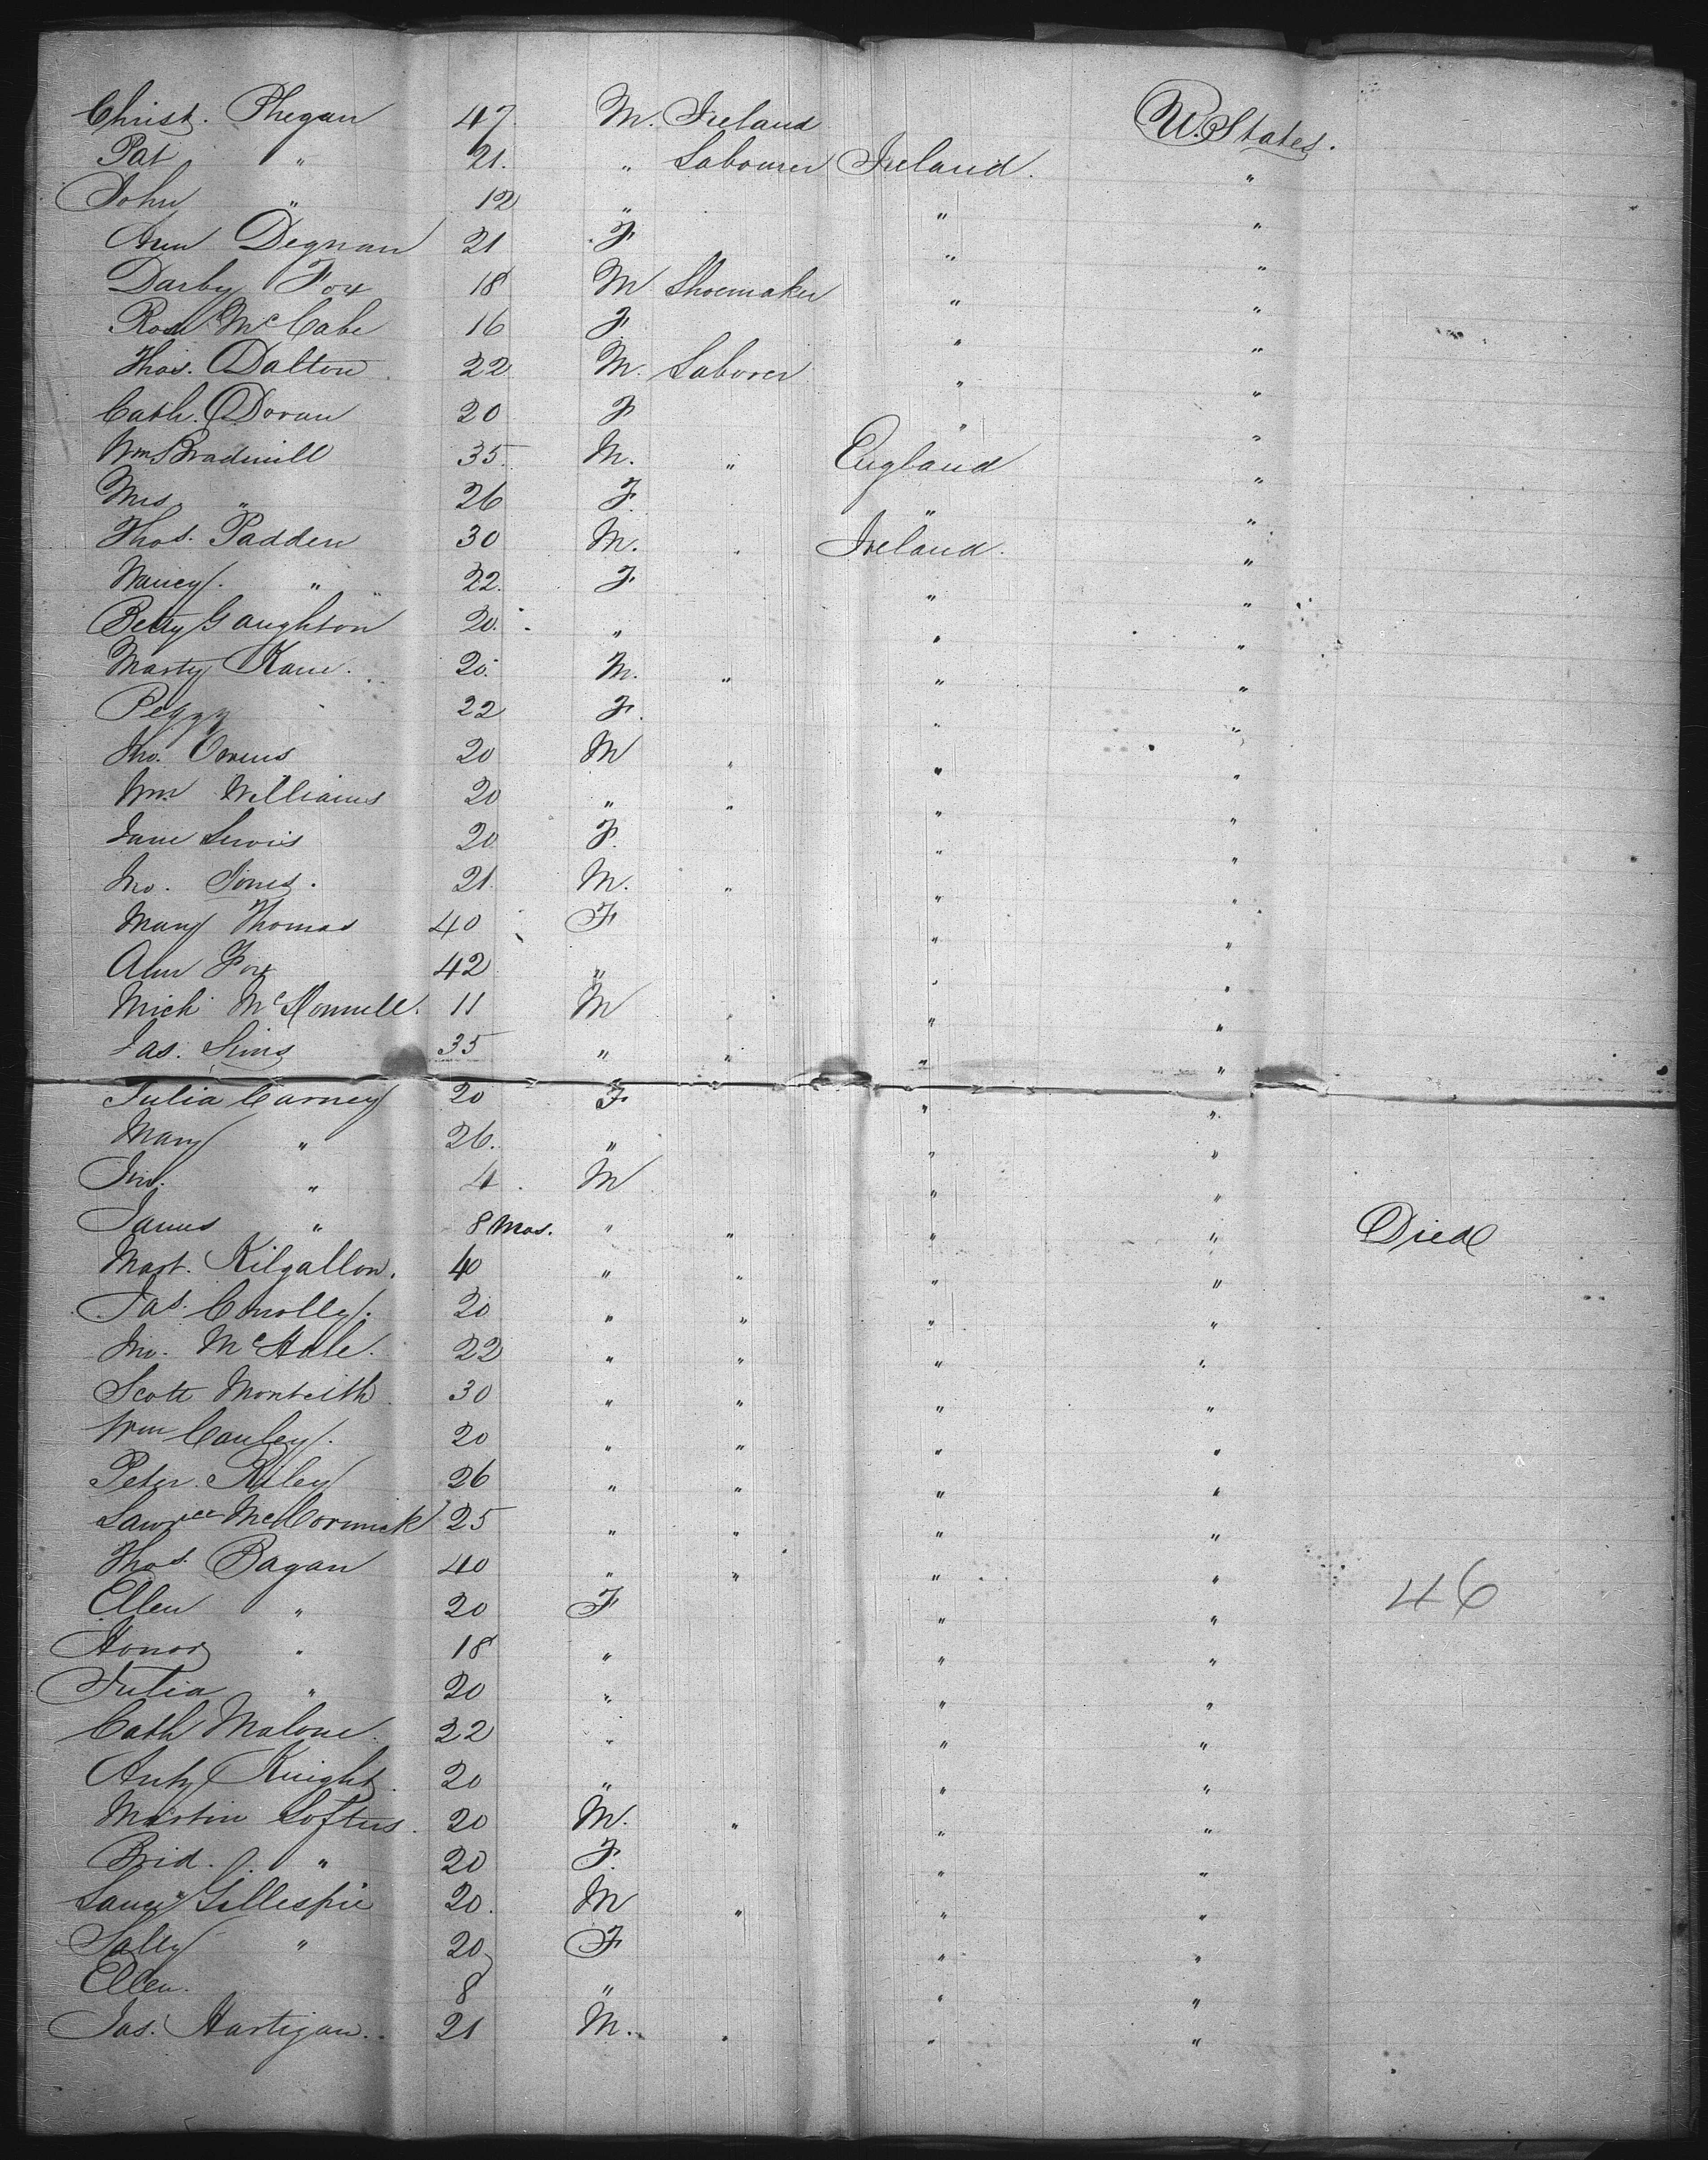 Christ. Phegan 47 M. Ireland U. States.
Pat " 21. " Labourer Ireland. "
John " 12 " " "
Ann Degnan 21 F " "
Darby Fox 18 M Shoemaker " "
Rose McCabe 16 F " "
Thos. Dalton 22 M. Laborer " "
Cath. Doran 20 F " "
Wm Bradwill 35 M. " England "
Mrs " 26 F. " "
Thos. Padden 30 M. " Ireland. "
Nancy. " 22. F " "
Betty Gaughton 20. " " "
Marty Kane. 20. M. " " "
Peggy 22 F. " "
Jno. Owens 20 M " " "
Wm Williams 20 " " " "
Jane Lewis 20 F. " "
Jno. Jones. 21. M. " " "
Mary Thomas 40 F " "
Ann Fox 42 " " "
Mich McConnell. 11 M " " "
Jas. Sims 35 " " " "
Julia Carney 20 F " "
Mary " 26. " " "
Jno. " 4. M " "
James " 8 Mos. " " " " Died
Mart. Kilgallon. 40 " " " "
Jas. Conolly. 20 " " " "
Jno. McHale. 22 " " " "
Scott Monteith 30 " " " "
Wm Cauley. 20 " " " "
Peter Riley 26 " " " "
Lawrce McCormick 25 " " " "
Thos. Bagan 40 " " " "
Ellen " 20 F " " 46
Honor " 18 " " "
Julia " 20 " " "
Cath Malone. 22 " " "
Anty Knight. 20 " " "
Martin Loftus. 20 M. " " "
Brid. " 20 F. " "
Gillespie 20. M " " "
Sally " 20 F " "
Ellen. 8 " " "
Jas. Hartigan. 21 M. " " "